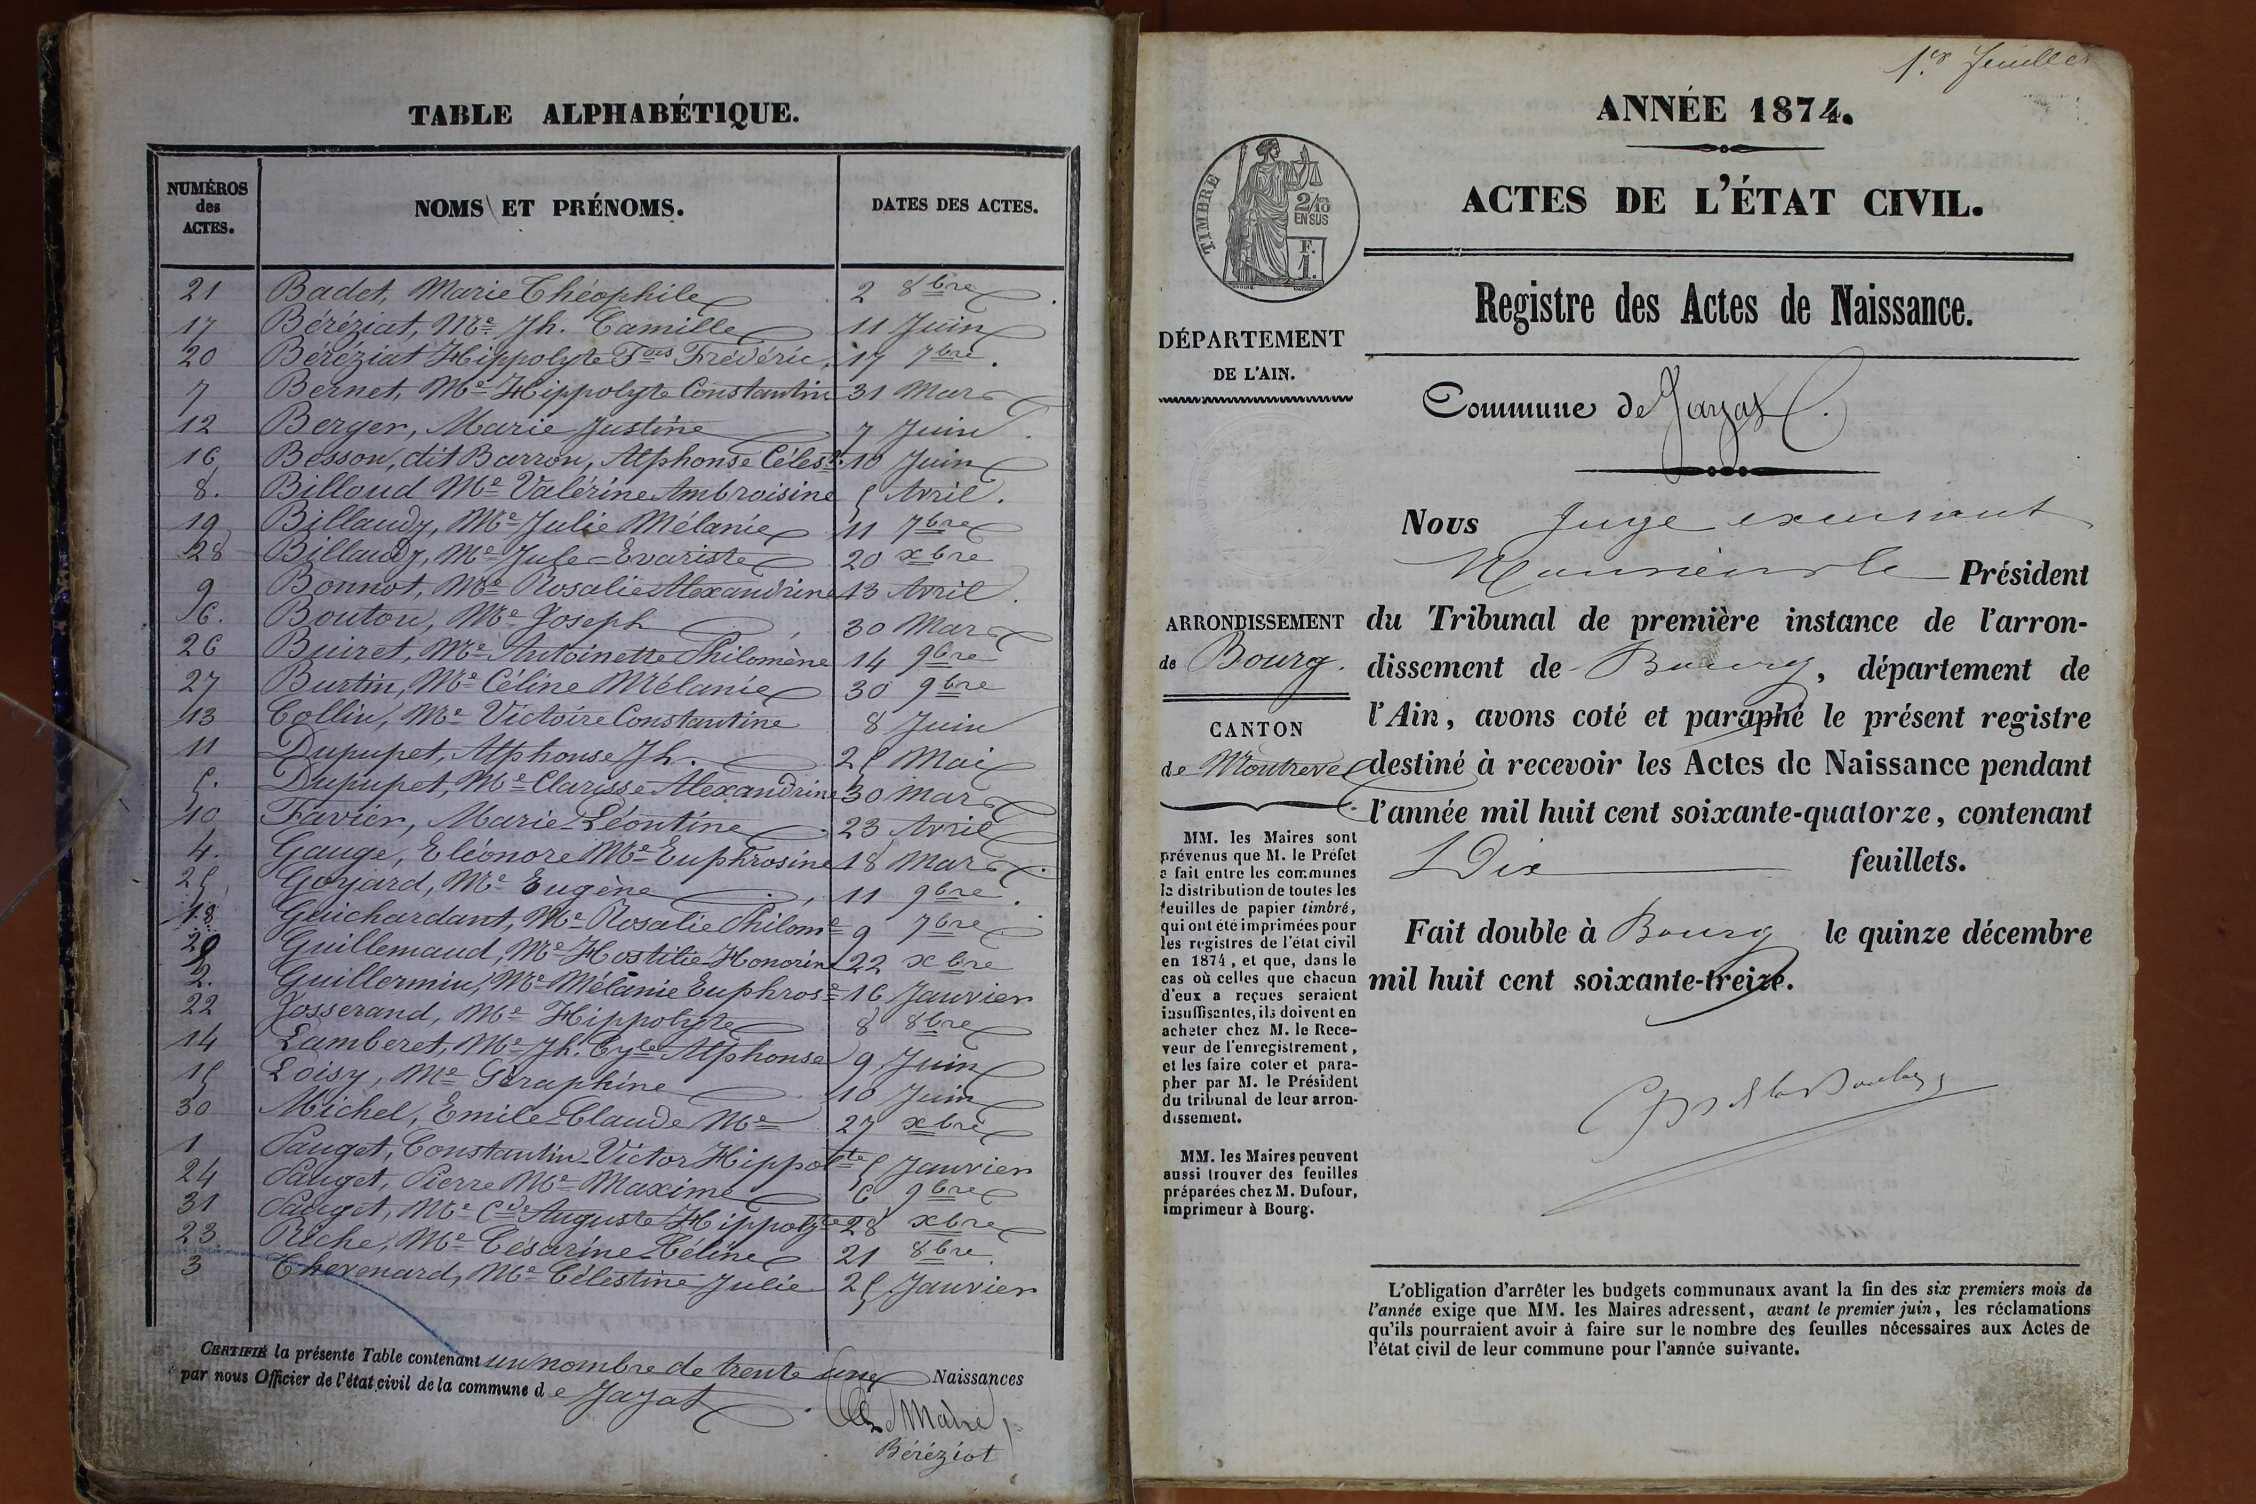 TABLE ALPHABÉTIQUE.
NUMÉROS des ACTES.
NOMS ET PRÉNOMS.
DATES DES ACTES.
21 Badet, Marie Théophile 2 8bre
17 Béréziat, Me Jh. Camille 11 Juin
20 Béréziat Hippolyte Fois Frédéric. 17 7bre.
7 Bernet, Me Hippolyte Constantin 31 Mars
12 Berger, Marie Justine 7 Juin
16 Besson, dit Barron, Alphonse Célest. 10 Juin
8. Billoud Me Valérine Ambroisine 5 Avril.
19 Billaudy, Me Julie Mélanie 11 7bre
28 Billaudy, Me Jule-Evariste 20 xbre
9 Bonnot, Me Rosalie Alexandrine 13 Avril.
6. Bouton, Me Joseph 30 Mars
26 Buiret, Me Antoinette Philomène 14 9bre
27 Burtin, Me Céline Mélanie 30 9bre
13 Collin, Me Victoire Constantine 8 Juin
11 Dupupet, Alphonse Jh. 25 Mai
5. Dupupet, Me Clarisse Alexandrine 30 Mars
10 Favier, Marie-Léontine 23 Avril
4. Gauge, Eléonore Me Euphrosine 18 Mars
25 Goyard, Me Eugène 11 9bre.
18 Guichardant, Me Rosalie Philome 9 7bre
29 Guillemaud, Me Hostilie-Honorine 22 xbre
2. Guillermin, Me Mélanie Euphrose 16 Janvier
22 Josserand, Me Hippolyte 8 8bre
14 Lamberet, Me Jh. Cyle Alphonse 9 Juin
15 Loisy, Me Séraphine 10 Juin
30 Michel, Emile-Claude Me 27 xbre
1 Pauget, Constantin-Victor Hippolte 5 Janvier
24 Pauget, Pierre Me Maxime 6 9bre
31 Pauget, Me Cde Auguste Hippolyte 28 xbre
23 Riche, Me Césarine-Céline 21 8bre
3 Chevenard, Me Célestine Julie 25 Janvier
CERTIFIÉ la présente Table contenant un nombre de trente une Naissances
par nous Officier de l'état civil de la commune d e Jayat.
Béréziat
1er feuillet
ANNÉE 1874.
ACTES DE L'ÉTAT CIVIL.
TIMBRE
2/10 EN SUS
F. 1.
Registre des Actes de Naissance.
DÉPARTEMENT
DE L'AIN.
Commune de Jayat.
Nous Juge excusant
Monsieur le Président
du Tribunal de première instance de l'arron-
dissement de Bourg, département de
l'Ain, avons coté et paraphé le présent registre
destiné à recevoir les Actes de Naissance pendant
l'année mil huit cent soixante-quatorze, contenant
Dix feuillets.
Fait double à Bourg le quinze décembre
mil huit cent soixante-treize.
ARRONDISSEMENT
de Bourg.
CANTON
de Montrevel
MM. les Maires sont
prévenus que M. le Préfet
a fait entre les communes
la distribution de toutes les
feuilles de papier timbré,
qui ont été imprimées pour
les registres de l'état civil
en 1874, et que, dans le
cas où celles que chacun
d'eux a reçues seraient
insuffisantes, ils doivent en
acheter chez M. le Rece-
veur de l'enregistrement,
et les faire coter et para-
pher par M. le Président
du tribunal de leur arron-
dissement.
MM. les Maires peuvent
aussi trouver des feuilles
préparées chez M. Dufour,
imprimeur à Bourg.
L'obligation d'arrêter les budgets communaux avant la fin des six premiers mois de
l'année exige que MM. les Maires adressent, avant le premier juin, les réclamations
qu'ils pourraient avoir à faire sur le nombre des feuilles nécessaires aux Actes de
l'état civil de leur commune pour l'année suivante.